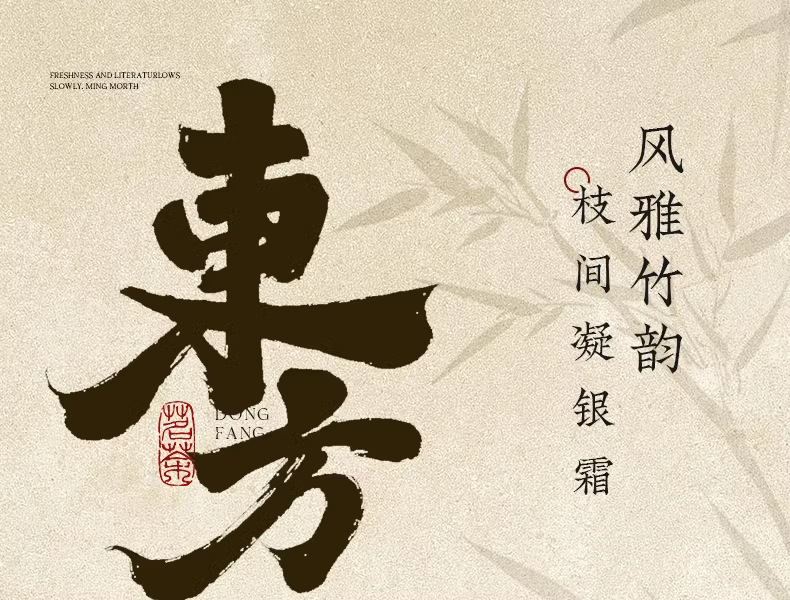 FRESHNESS AND LITERATURLOWS
SLOWLY. MING MORTH
東方
DONG
FANG
茗茶
风雅竹韵
枝间凝银霜